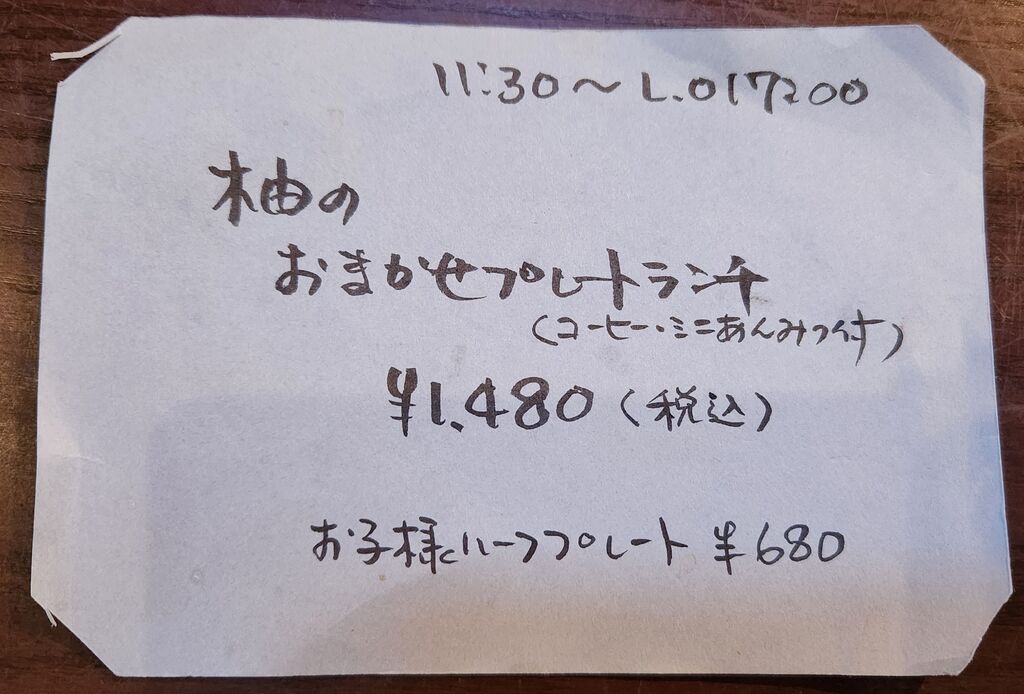 11:30～L.O17:00
柚の
おまかせプレートランチ
(コーヒー・ミニあんみつ付)
¥1,480(税込)
お子様ハーフプレート ¥680